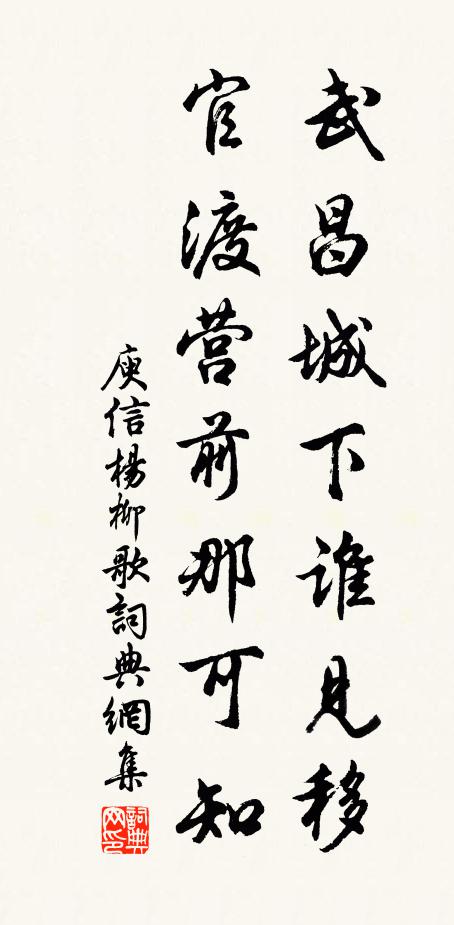 武昌城下谁見移
官渡营前那可知
庾信楊柳歌詞典網集
詞典网印